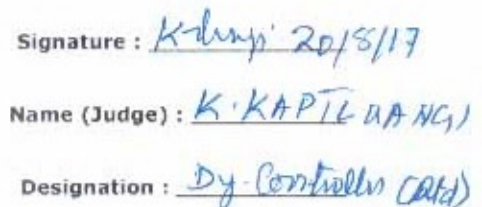 Signature : 20/8/17
Name (Judge) : K. KAPIL
Designation : Dy. Controller (Rtd)